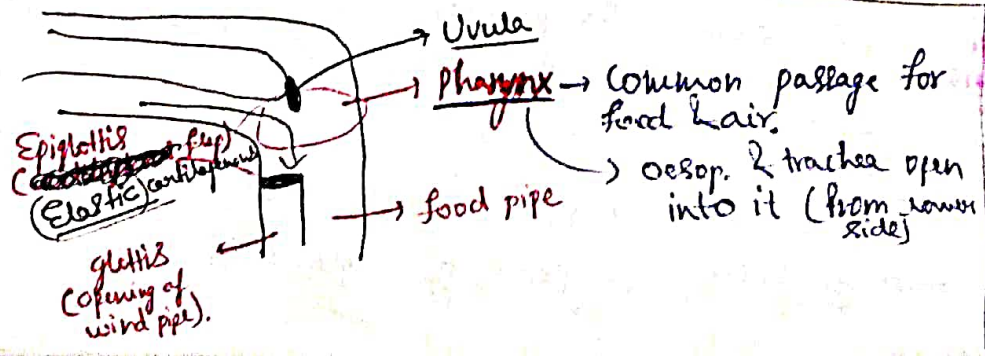 Uvula
Pharynx → Common passage for
food & air.
→ oesop. & trachea open
into it (from lower
side)
Epiglottis
flap)
(Elastic) cartilagenous
→ food pipe
glottis
(opening of
wind pipe).